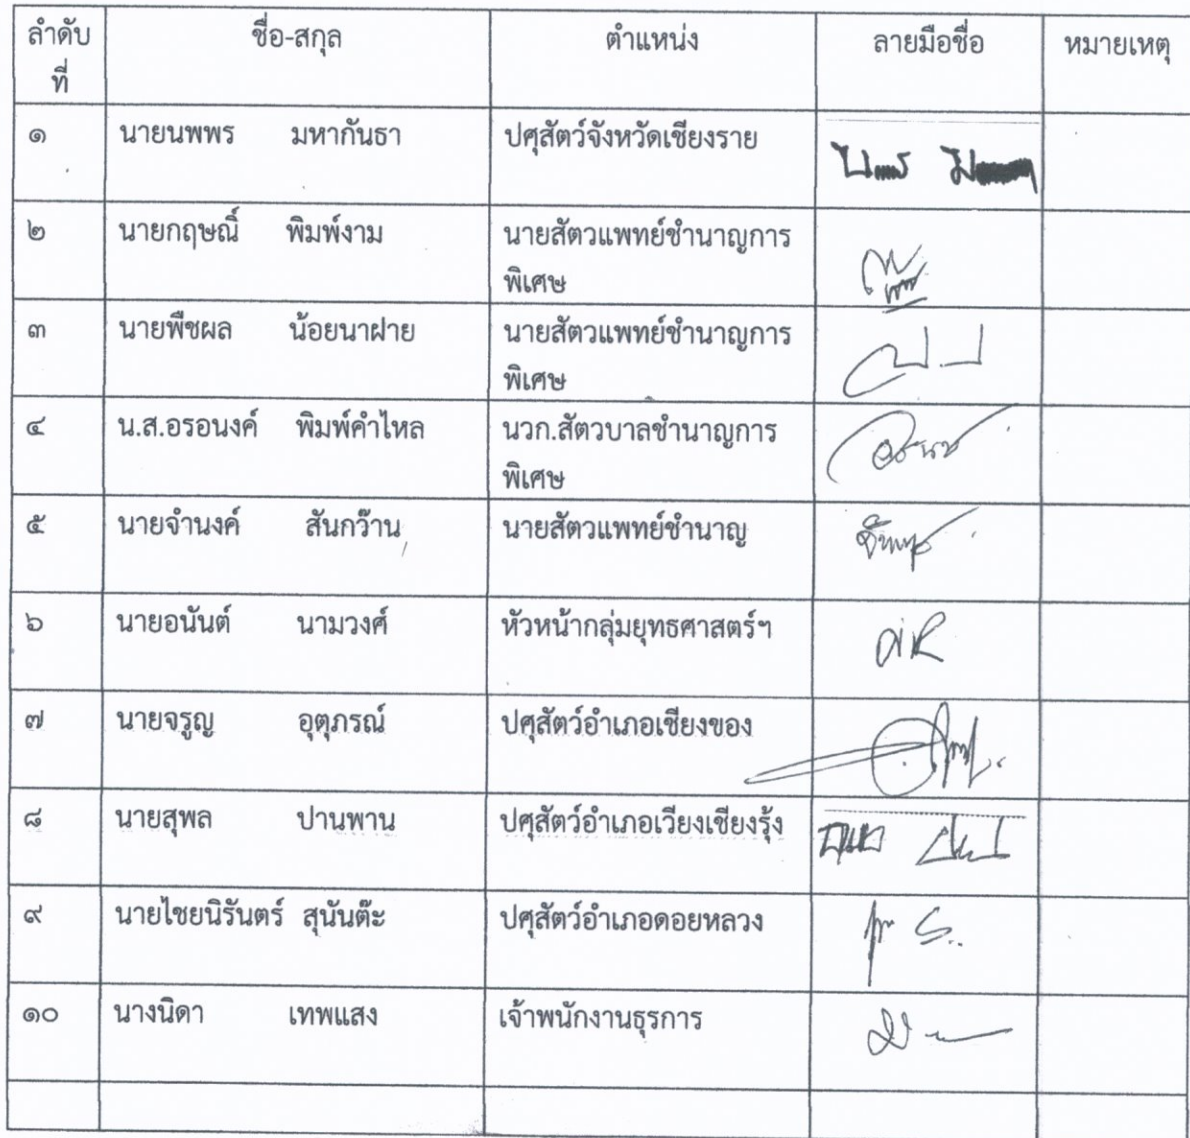 ลำดับ ชื่อ-สกุล ตำแหน่ง ลายมือชื่อ หมายเหตุ
ที่
๑ นายนพพร มหากันธา ปศุสัตว์จังหวัดเชียงราย
๒ นายกฤษณิ์ พิมพ์งาม นายสัตวแพทย์ชำนาญการ
พิเศษ
๓ นายพืชผล น้อยนาฝาย นายสัตวแพทย์ชำนาญการ
พิเศษ
๔ น.ส.อรอนงค์ พิมพ์คำไหล นวก.สัตวบาลชำนาญการ
พิเศษ
๕ นายจำนงค์ สันกว๊าน นายสัตวแพทย์ชำนาญ
๖ นายอนันต์ นามวงศ์ หัวหน้ากลุ่มยุทธศาสตร์ฯ
๗ นายจรูญ อุตุภรณ์ ปศุสัตว์อำเภอเชียงของ
๘ นายสุพล ปานพาน ปศุสัตว์อำเภอเวียงเชียงรุ้ง
๙ นายไชยนิรันตร์ สุนันต๊ะ ปศุสัตว์อำเภอดอยหลวง
๑๐ นางนิดา เทพแสง เจ้าพนักงานธุรการ